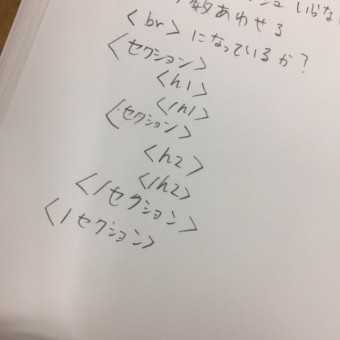 いらない
数あわせる
<br>になっているか?
<セクション>
<h1>
</h1>
<セクション>
<h2>
</h2>
</セクション>
</セクション>